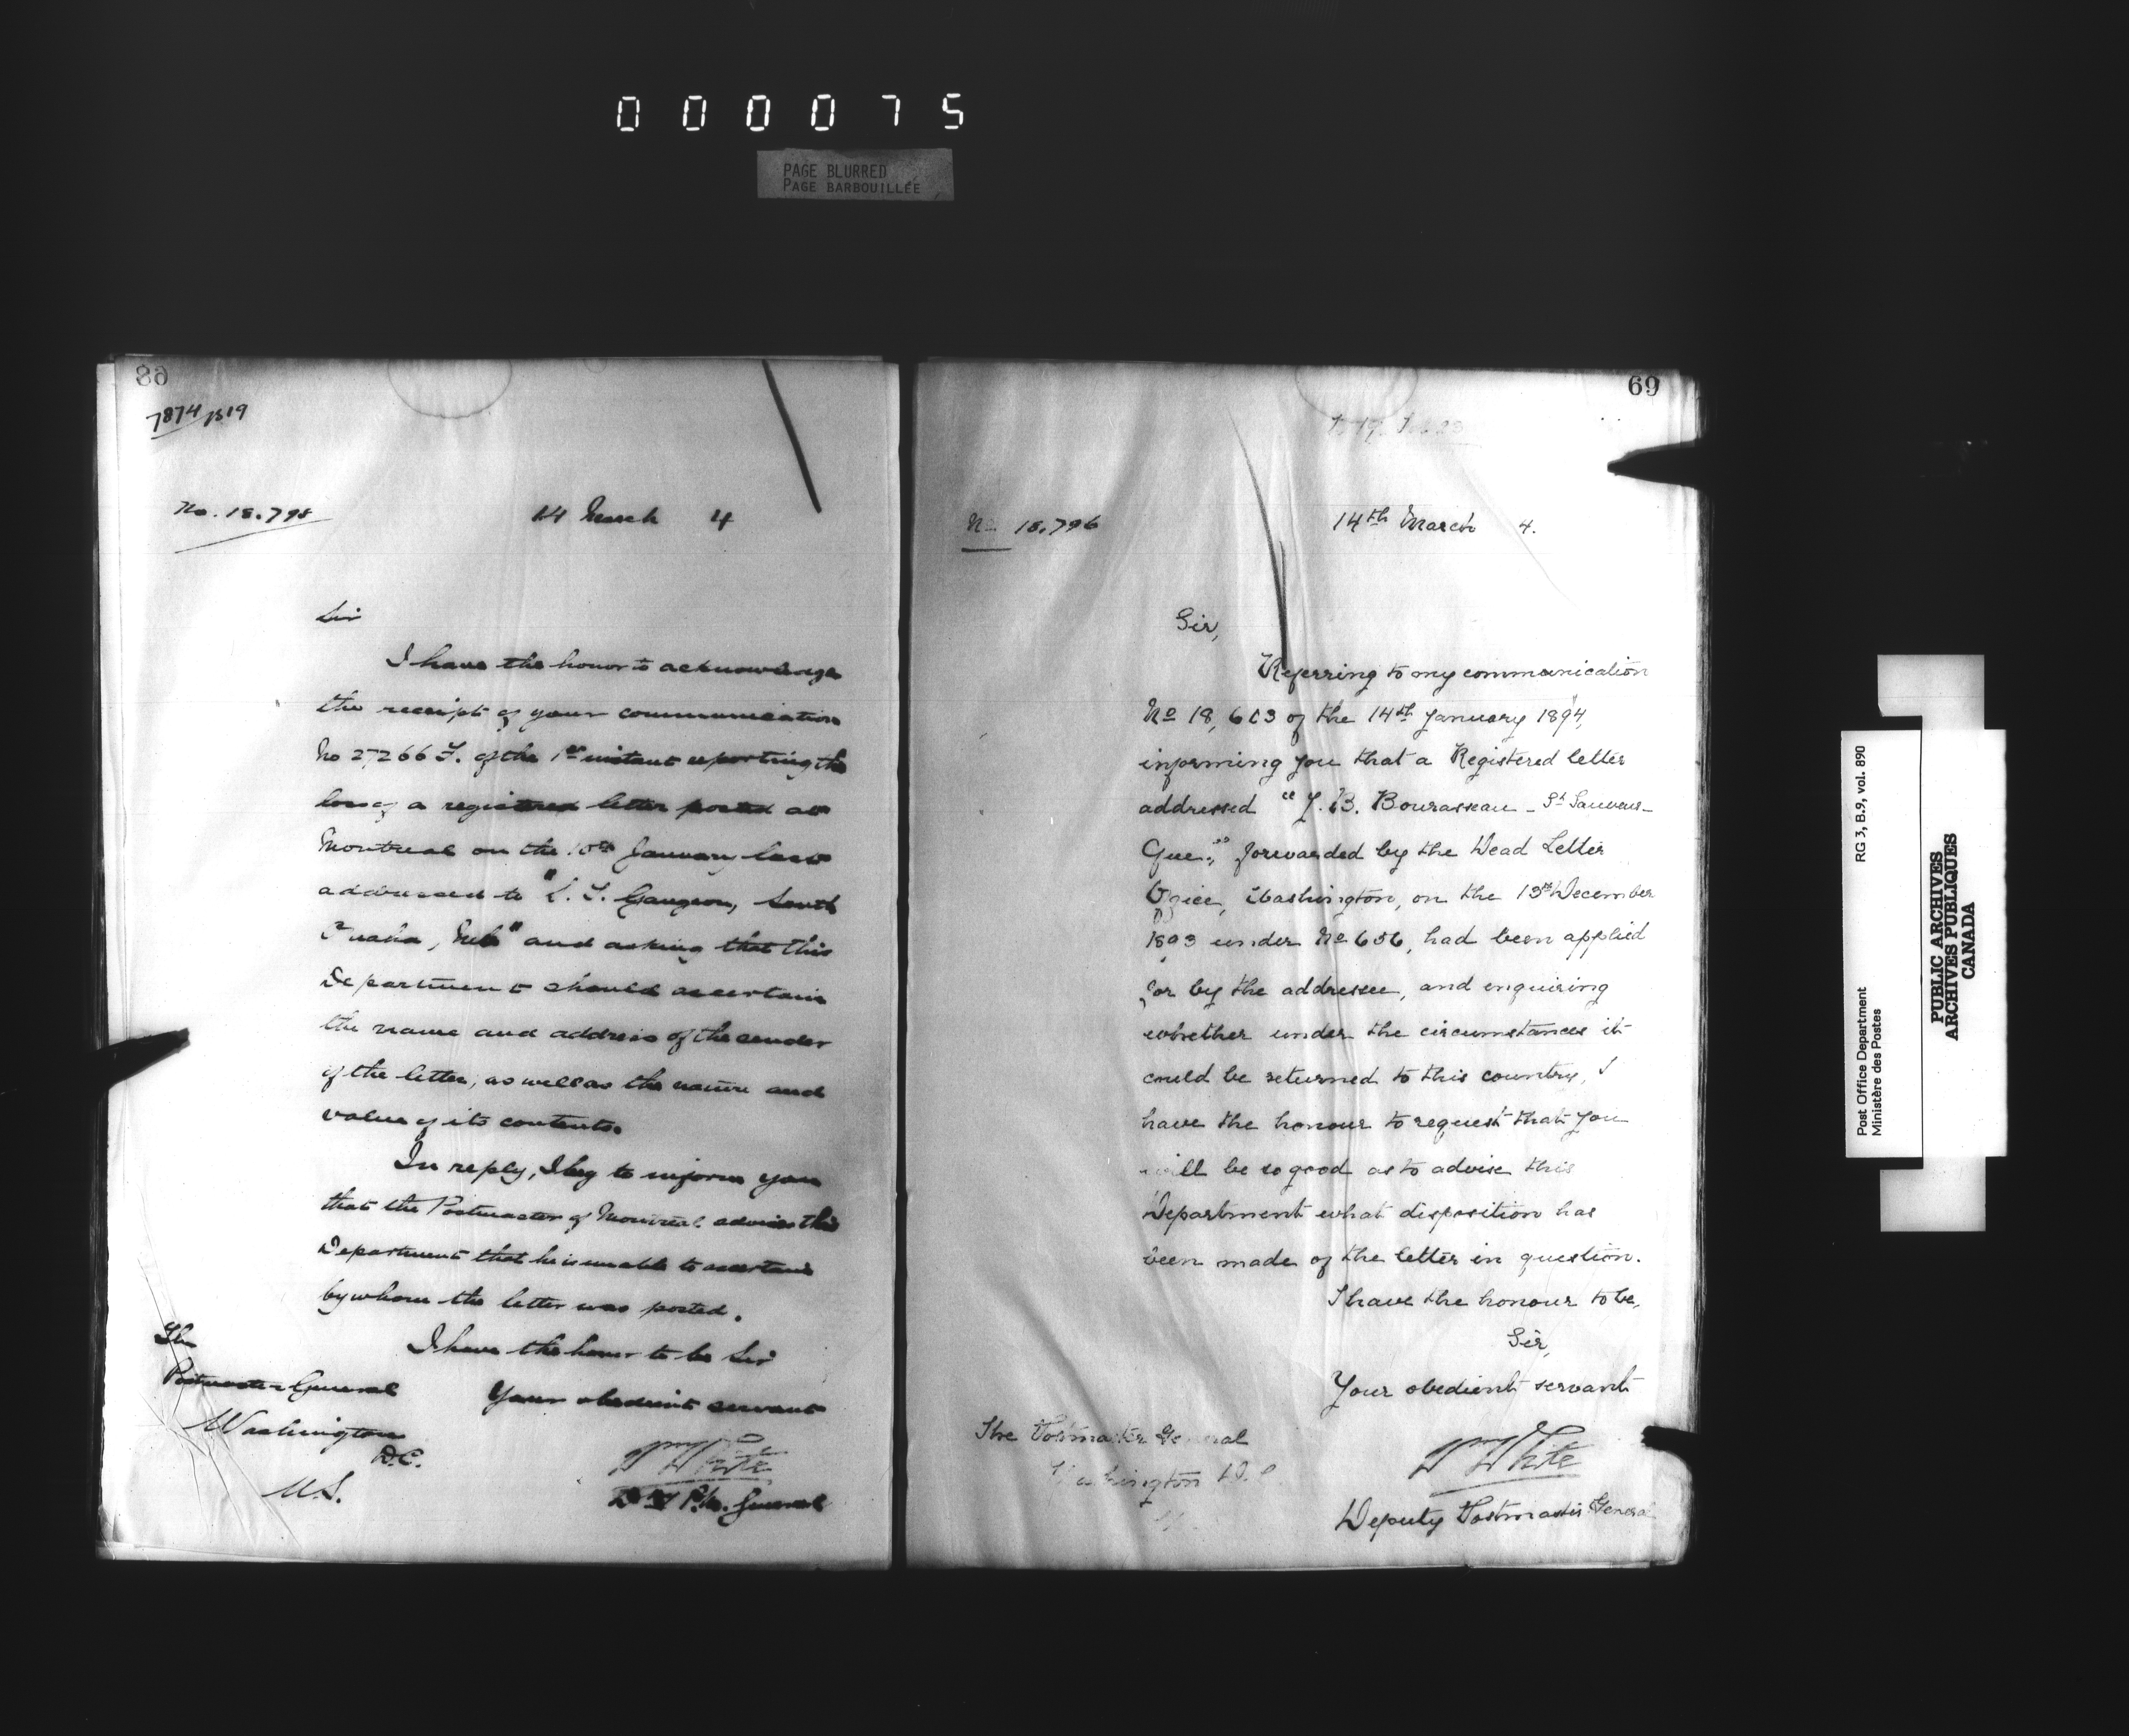 000075
PAGE BLURRED
PAGE BARBOUILLÉE
68
7874
No. 18.795
14 March 4
Sir
I have the honor to acknowledge
the receipt of your communication
No 27266 F. of the 1st instant reporting the
loss of a registered letter posted at
Montreal on the 10th January last
addressed to "L. T. Gaugeon, South
Omaha, Neb" and asking that this
Department should ascertain
the name and address of the sender
of the letter, as well as the nature and
value of its contents.
In reply, I beg to inform you
that the Postmaster of Montreal advises this
Department that he is unable to ascertain
by whom the letter was posted.
I have the honor to be Sir
Your obedient servant
Wm White
Dy P.M. General
The
Postmaster General
Washington
D.C.
U.S.
69
No 18.796
14th March 4.
Sir,
Referring to my communication
No 18,603 of the 14th January 1894,
informing you that a Registered letter
addressed "J. B. Bourasseau - St Sauveur -
Que:," forwarded by the Dead Letter
Office, Washington, on the 13th December
1893 under No 656, had been applied
for by the addressee, and enquiring
whether under the circumstances it
could be returned to this country, I
have the honour to request that you
will be so good as to advise this
Department what disposition has
been made of the letter in question.
I have the honour to be,
Sir,
Your obedient servant
Wm White
Deputy Postmaster General
The Postmaster General
Washington D.C.
RG 3, B.9, vol. 890
Post Office Department
Ministère des Postes
PUBLIC ARCHIVES
ARCHIVES PUBLIQUES
CANADA